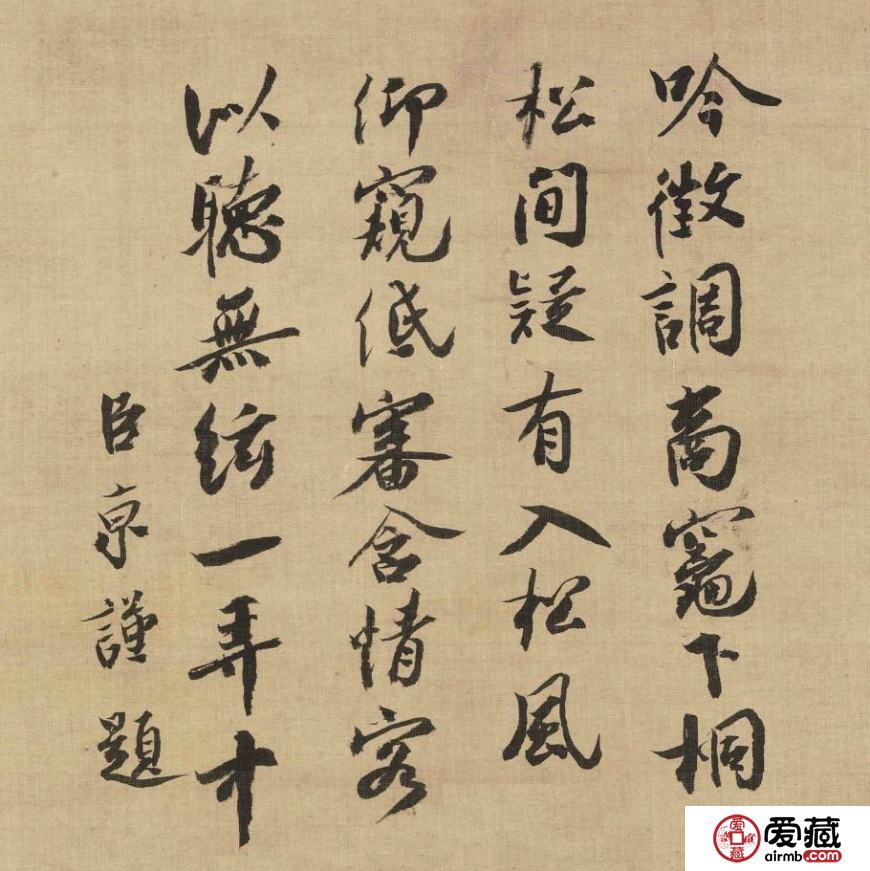 吟徵調商竈下桐
松間疑有入松風
仰窺低審含情客
以聽無絃一弄中
臣京謹題
爱藏
airmb.com